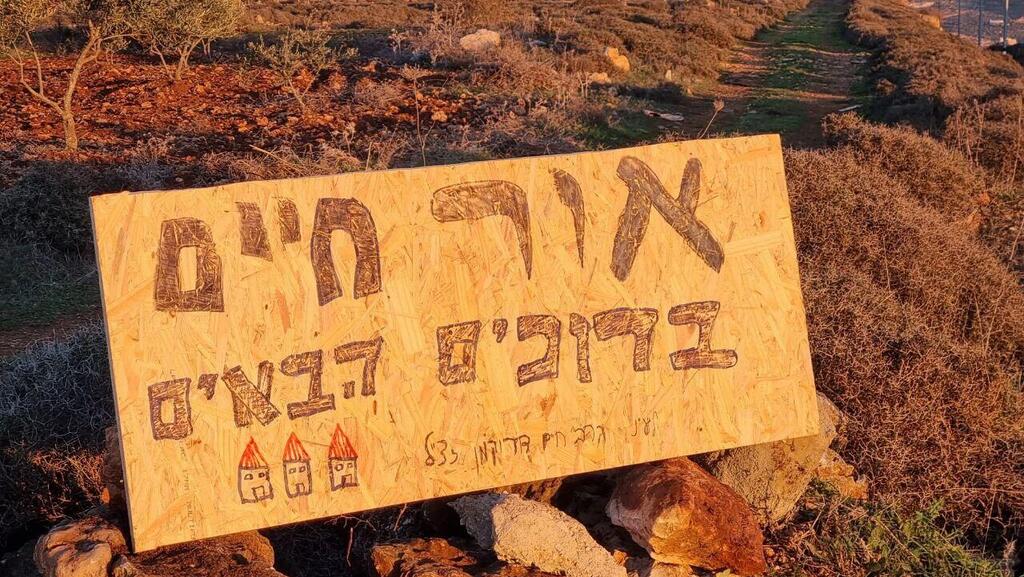 אור חיים
ברוכים הבאים
לע״נ הרב חיים דרוקמן זצ״ל